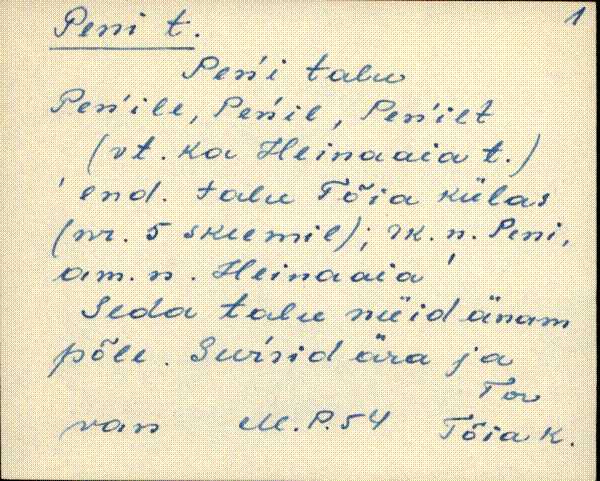 1
Peni t.
Peńi talu
Peńile, Peńil, Peńilt
(vt. ka Heinaaia t.)
' end. talu Tõia külas
(nr. 5 skeemil); rk. n. Peni,
am. n. Heinaaia '
Seda talu nüid änam
põle. Suŕsid ära ja
Tor
van M.P.54 Tõia k.